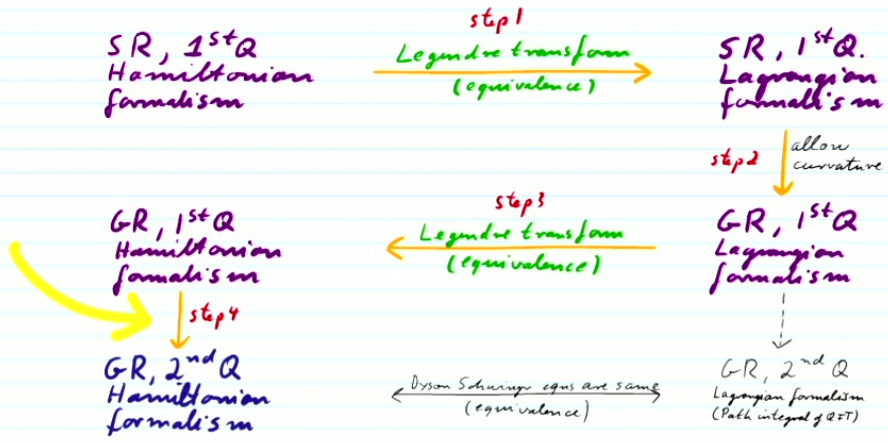 step1
SR, 1stQ
Hamiltonian
formalism
Legendre transform
(equivalence)
SR, 1stQ.
Lagrangian
formalism
step2
allow
curvature
GR, 1stQ
Hamiltonian
formalism
step3
Legendre transform
(equivalence)
GR, 1stQ
Lagrangian
formalism
step4
GR, 2ndQ
Hamiltonian
formalism
Dyson Schwinger eqns are same
(equivalence)
GR, 2nd Q
Lagrangian formalism
(Path integral of QFT)